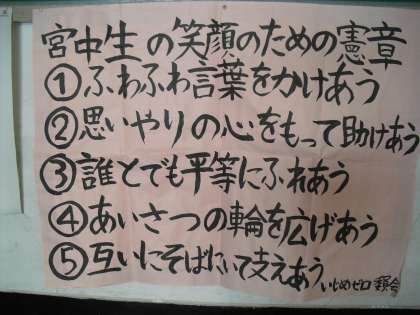 宮中生の笑顔のための憲章
①ふわふわ言葉をかけあう
②思いやりの心をもって助けあう
③誰とでも平等にふれあう
④あいさつの輪を広げあう
⑤互いにそばにいて支えあう
いじめゼロ